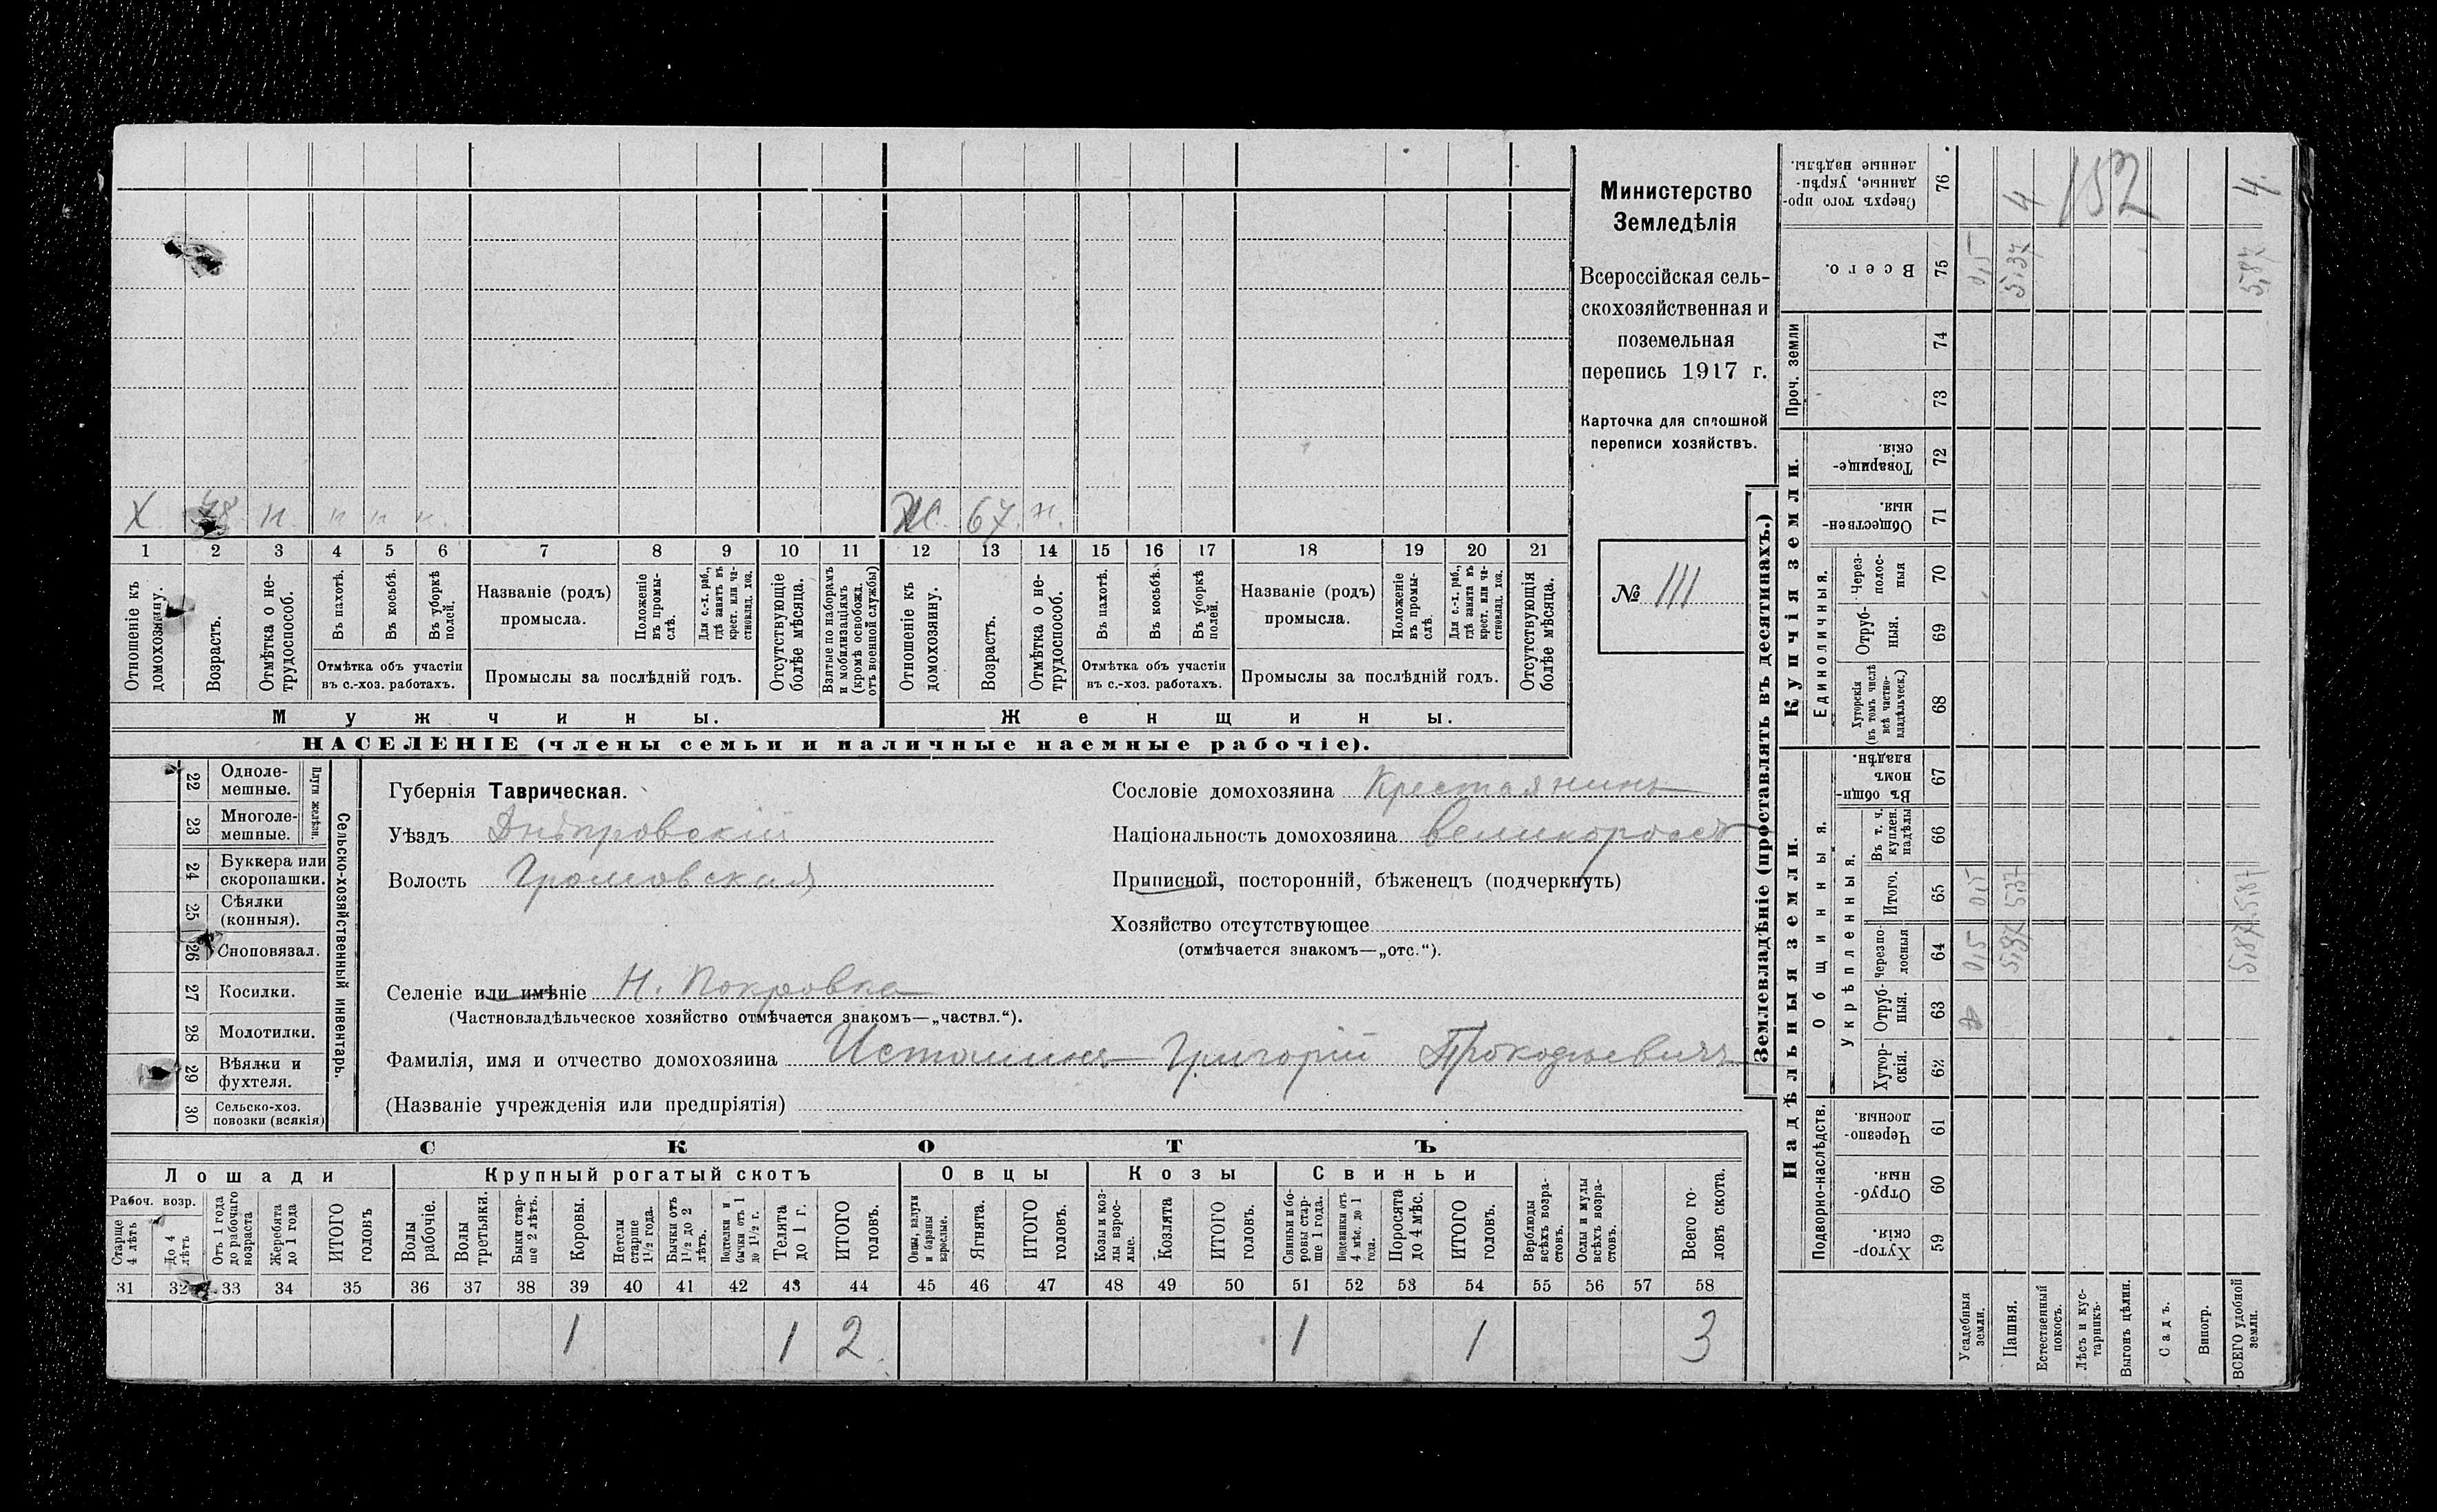 Министерство
Земледѣлія
Всероссійская сель-
скохозяйственная и
поземельная
перепись 1917 г.
Карточка для сплошной
переписи хозяйствъ.
№ 111
Х 78 н н н н
Ж. 67. н.
1 2 3 4 5 6 7 8 9 10 11 12 13 14 15 16 17 18 19 20 21
Отношеніе къ домохозяину.
Возрастъ.
Отмѣтка о не-трудоспособ.
Въ пахотѣ.
Въ косьбѣ.
Въ уборкѣ полей.
Отмѣтка объ участіи
въ с.-хоз. работахъ.
Названіе (родъ)
промысла.
Положеніе въ промы-слѣ.
Для с.-х. раб., гдѣ занятъ въ крест. или ча-стновлад. хоз.
Промыслы за послѣдній годъ.
Отсутствующіе болѣе мѣсяца.
Взятые по наборамъ и мобилизаціямъ (кромѣ освобожд. отъ военной службы)
Отношеніе къ домохозяину.
Возрастъ.
Отмѣтка о не-трудоспособ.
Въ пахотѣ.
Въ косьбѣ.
Въ уборкѣ полей.
Отмѣтка объ участіи
въ с.-хоз. работахъ.
Названіе (родъ)
промысла.
Положеніе въ промы-слѣ.
Для с.-х. раб., гдѣ занята въ крест. или ча-стновлад. хоз.
Промыслы за послѣдній годъ.
Отсутствующія болѣе мѣсяца.
Мужчины.
Женщины.
НАСЕЛЕНІЕ (члены семьи и наличные наемные рабочіе).
Сельско-хозяйственный инвентарь.
Плуги желѣзн.
22 Одноле-мешные.
23 Многоле-мешные.
24 Буккера или скоропашки.
25 Сѣялки (конныя).
26 Сноповязал.
27 Косилки.
28 Молотилки.
29 Вѣялки и фухтеля.
30 Сельско-хоз. повозки (всякія)
Губернія Таврическая.
Уѣздъ Днѣпровскій
Волость Громовская
Сословіе домохозяина Крестьянинъ
Національность домохозяина великороссъ
Приписной, посторонній, бѣженецъ (подчеркнуть)
Хозяйство отсутствующее
(отмѣчается знакомъ—„отс.“).
Селеніе или имѣніе Н. Покровка
(Частновладѣльческое хозяйство отмѣчается знакомъ—„частвл.“).
Фамилія, имя и отчество домохозяина Истоминъ Григорій Прокофьевичъ
(Названіе учрежденія или предпріятія)
СКОТЪ
Лошади
Крупный рогатый скотъ
Овцы
Козы
Свиньи
Рабоч. возр.
Старше 4 лѣтъ
До 4 лѣтъ
Отъ 1 года до рабочаго возраста
Жеребята до 1 года
ИТОГО головъ
Волы рабочіе.
Волы третьяки.
Быки стар-ше 2 лѣтъ.
Коровы.
Нетели старше 1½ года.
Бычки отъ 1½ до 2 лѣтъ.
Подтелки и бычки отъ 1 до 1½ г.
Телята до 1 г.
ИТОГО головъ.
Овцы, валухи и бараны взрослые.
Ягнята.
ИТОГО головъ.
Козы и коз-лы взрос-лые.
Козлята
ИТОГО головъ.
Свиньи и бо-ровы стар-ше 1 года.
Подсвинки отъ 4 мѣс. до 1 года.
Поросята до 4 мѣс.
ИТОГО головъ.
Верблюды всѣхъ возра-стовъ.
Ослы и мулы всѣхъ возра-стовъ.
Всего го-ловъ скота.
31 32 33 34 35 36 37 38 39 40 41 42 43 44 45 46 47 48 49 50 51 52 53 54 55 56 57 58
1 1 2 1 1 3
Землевладѣніе (проставлять въ десятинахъ.)
Надѣльныя земли.
Купчія земли.
Проч. земли
Подворно-наслѣдств.
Общинныя.
Укрѣпленныя.
Единоличныя.
Хутор-скія. 59
Отруб-ныя. 60
Черезпо-лосныя. 61
Хутор-скія. 62
Отруб-ныя. 63
Черезпо-лосныя 64
Итого. 65
Въ т. ч. куплен. надѣлы 66
Въ общин-номъ владѣн. 67
Хуторскія (въ томъ числѣ всѣ частно-владѣльческ.) 68
Отруб-ныя. 69
Через-полос-ныя 70
Обществен-ныя. 71
Товарище-скія. 72
73
74
Всего. 75
Сверхъ того про-данные, укрѣп-ленные надѣлы. 76
Усадебныя земли. 0,5 0,5 0,5
Пашня. 5,37 5,37 5,37 4
Естественный покосъ.
Лѣсъ и кус-тарникъ.
Выгонъ цѣлин.
Садъ.
Виногр.
ВСЕГО удобной земли. 5,87 5,87 5,87 4.
152